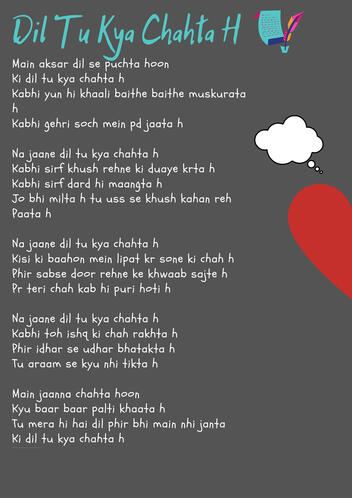 Dil Tu Kya Chahta H
Main aksar dil se puchta hoon
Ki dil tu kya chahta h
Kabhi yun hi khaali baithe baithe muskurata
h
Kabhi gehri soch mein pd jaata h
Na jaane dil tu kya chahta h
Kabhi sirf khush rehne ki duaye krta h
Kabhi sirf dard hi maangta h
Jo bhi milta h tu uss se khush kahan reh
Paata h
Na jaane dil tu kya chahta h
Kisi ki baahon mein lipat kr sone ki chah h
Phir sabse door rehne ke khwaab sajte h
Pr teri chah kab hi puri hoti h
Na jaane dil tu kya chahta h
Kabhi toh ishq ki chah rakhta h
Phir idhar se udhar bhatakta h
Tu araam se kyu nhi tikta h
Main jaanna chahta hoon
Kyu baar baar palti khaata h
Tu mera hi hai dil phir bhi main nhi janta
Ki dil tu kya chahta h